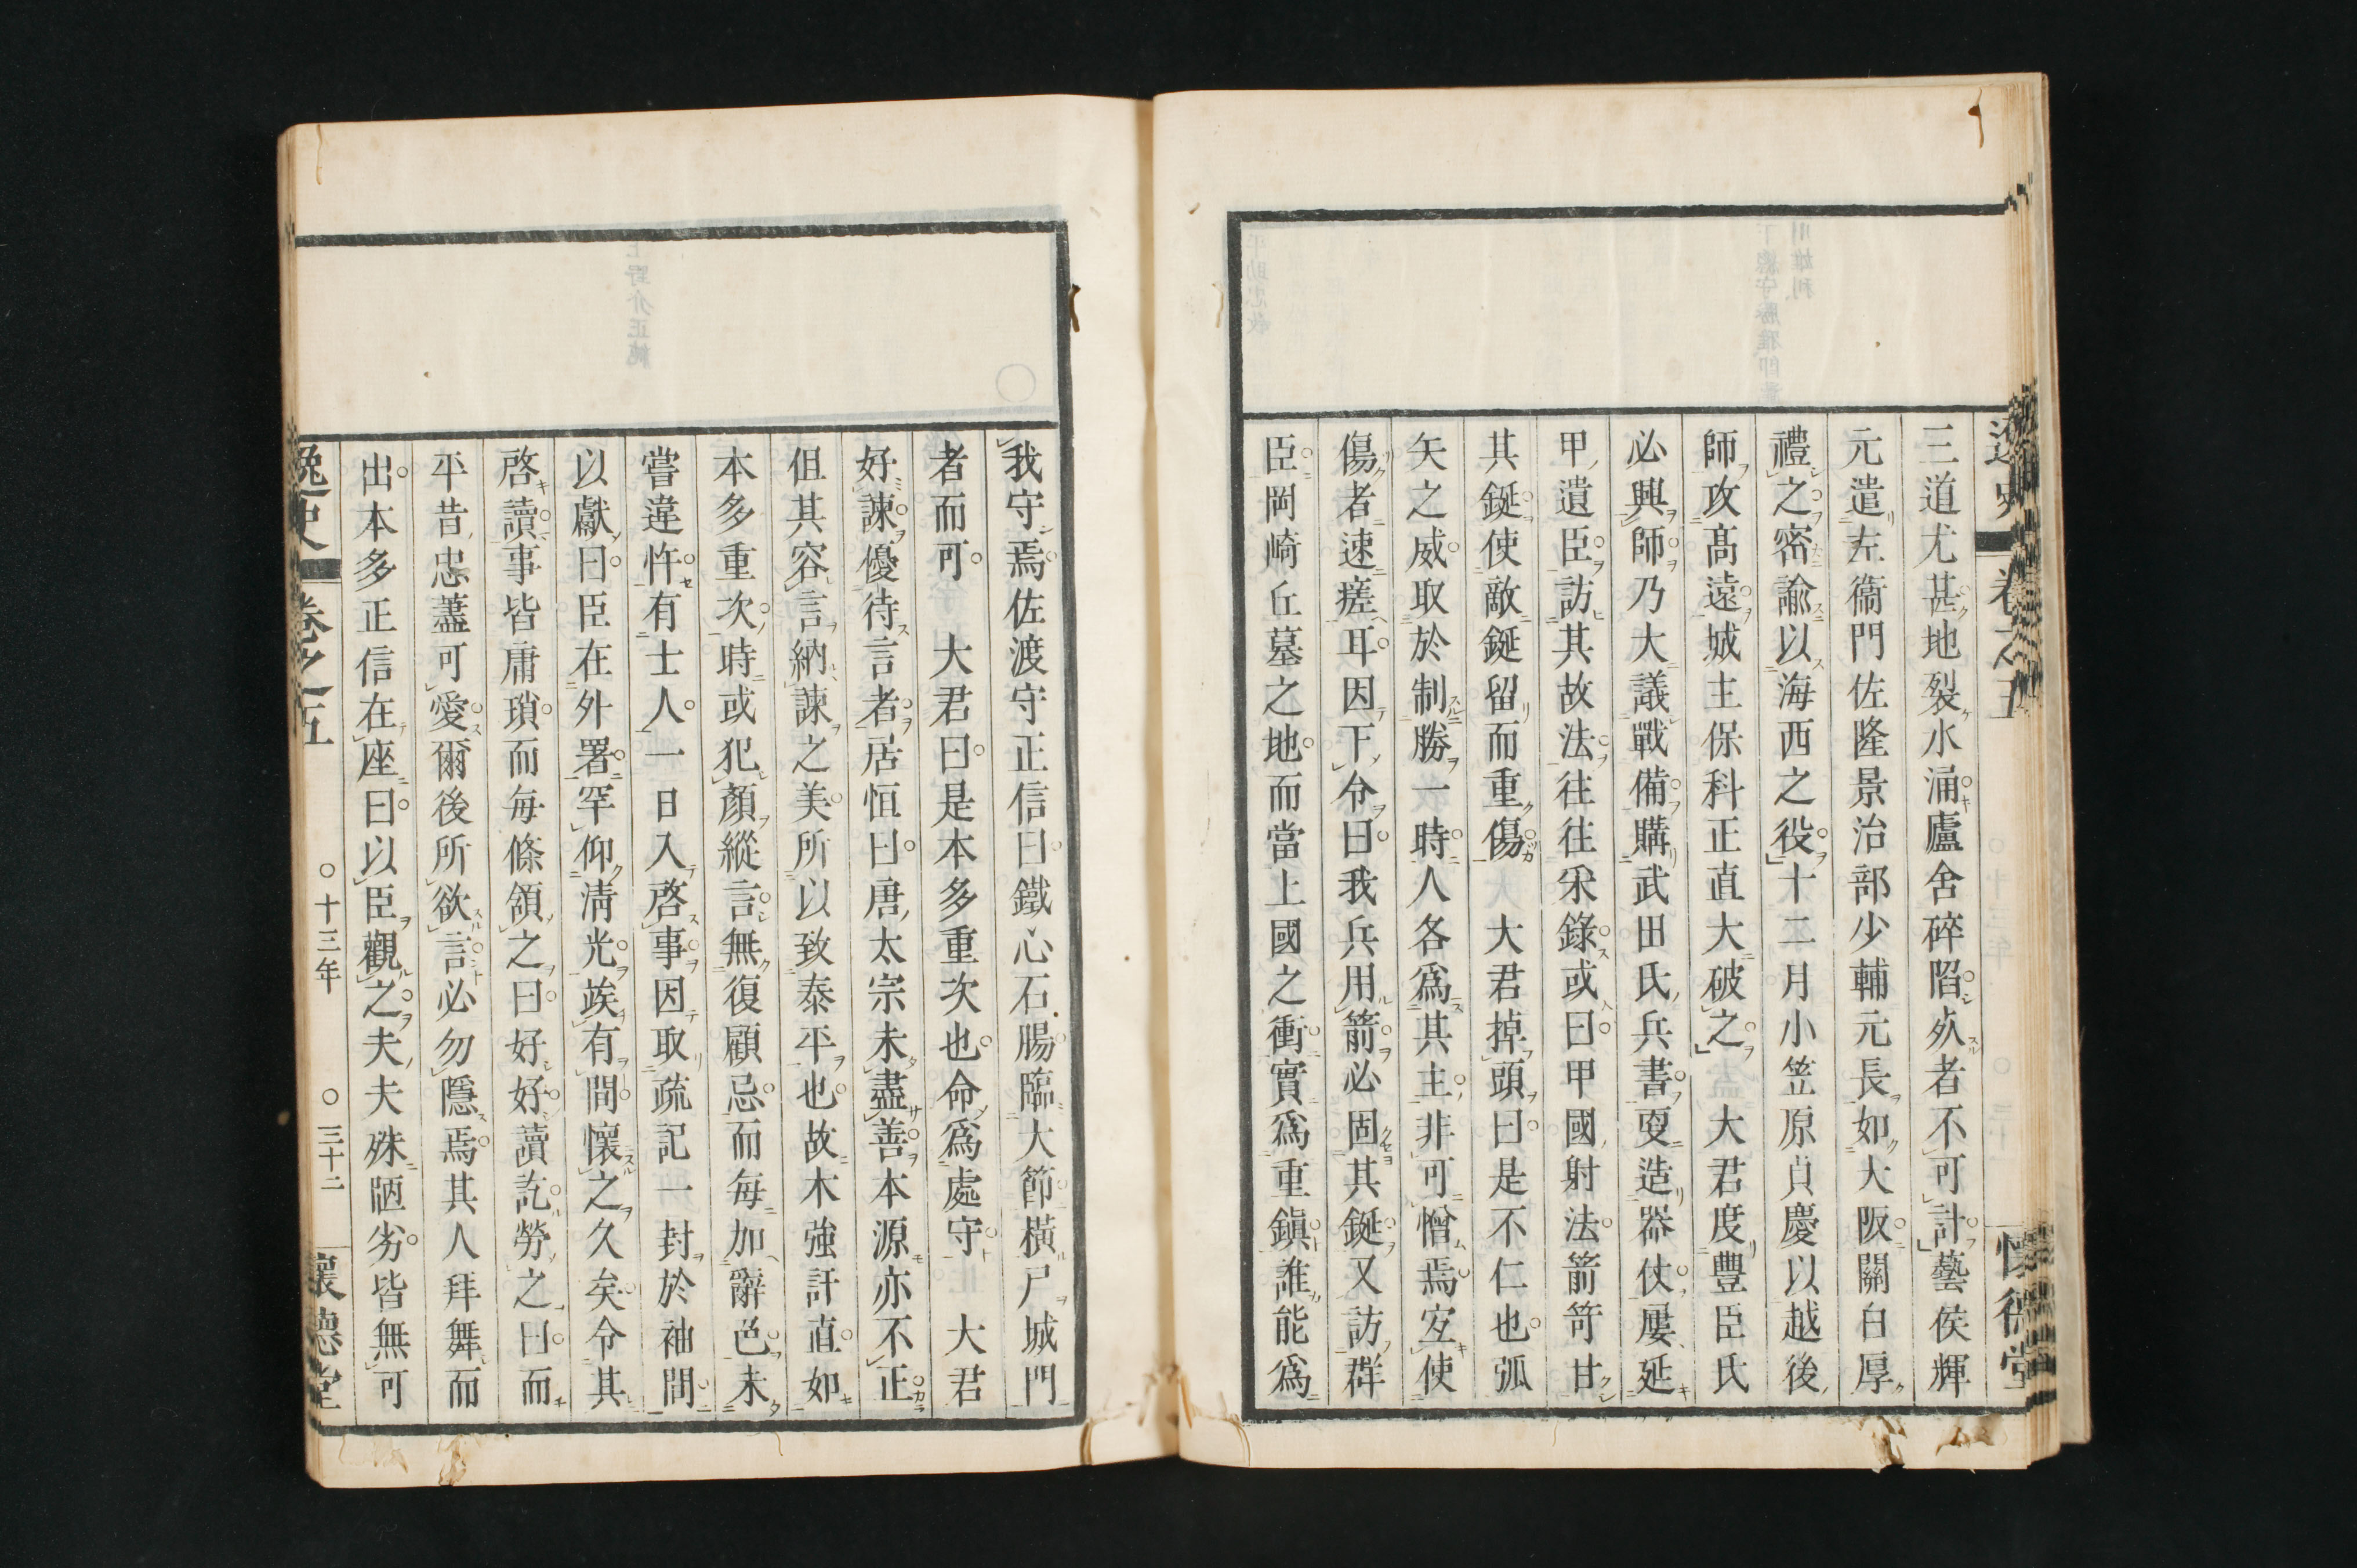 三道尤甚地裂水涌廬舍碎陷死者不可計藝侯輝
元遣左衞門佐隆景治部少輔元長如大阪關白厚
禮之密諭以海西之役十二月小笠原貞慶以越後
師攻高遠城主保科正直大破之　大君度豐臣氏
必興師乃大議戰備購武田氏兵書更造器仗屢延
甲遺臣訪其故法往往采錄或曰甲國射法箭笴甘
其鋋使敵鋋留而重傷　大君掉頭曰是不仁也弧
矢之威取於制勝一時人各爲其主非可憎焉宜使
傷者速瘥耳因下令曰我兵用箭必固其鋋又訪群
臣岡崎丘墓之地而當上國之衝實爲重鎭誰能爲
我守焉佐渡守正信曰鐵心石腸臨大節橫尸城門
者而可　大君曰是本多重次也命爲處守　大君
好諫優待言者居恒曰唐太宗未盡善本源亦不正
但其容言納諫之美所以致泰平也故木強訐直如
本多重次時或犯顏縱言無復顧忌而每加辭色未
嘗違忤有士人一日入啓事因取疏記一封於袖間
以獻曰臣在外署罕仰淸光竢有間懷之久矣令其
啓讀事皆庸瑣而每條頷之曰好好讀訖勞之曰而
平昔忠藎可愛爾後所欲言必勿隱焉其人拜舞而
出本多正信在座曰以臣觀之夫夫殊陋劣皆無可
逸史　卷之五　○十三年　○三十二　懷德堂